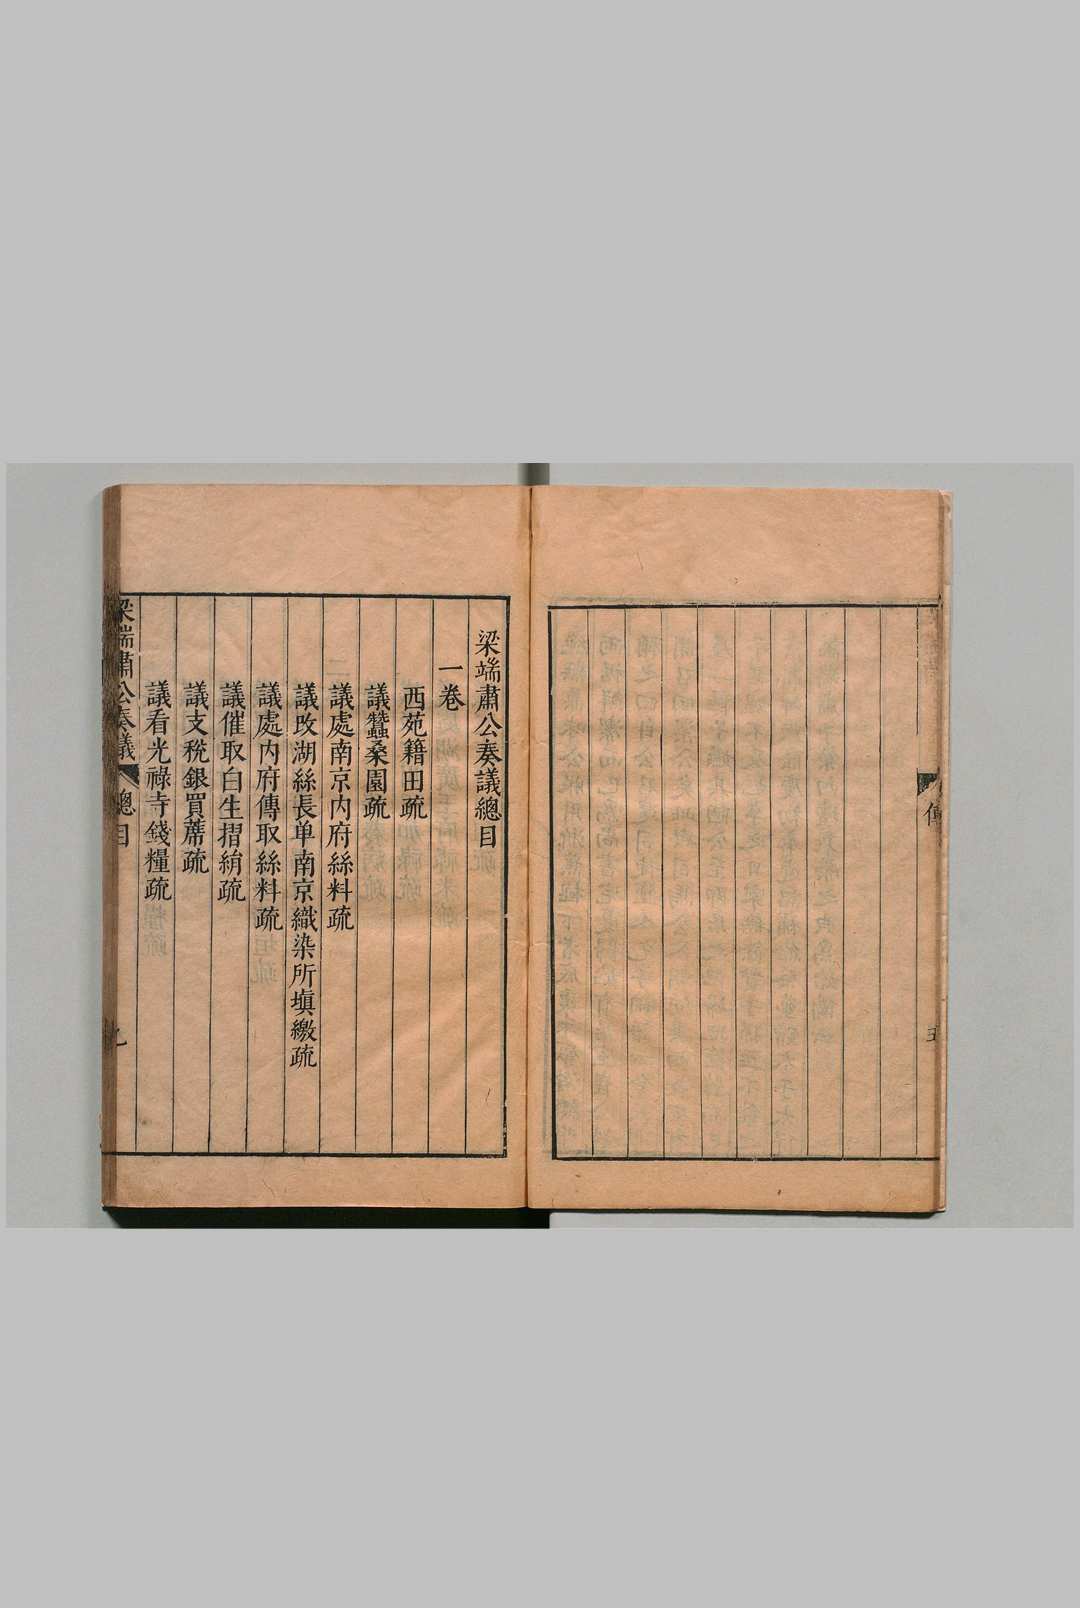 傳
五
梁端肅公奏議總目
一卷
西苑籍田疏
議蠶桑園疏
議處南京内府絲料疏
議改湖絲長单南京織染所塡繳疏
議處内府傳取絲料疏
議催取白生摺絹疏
議支稅銀買蓆疏
議看光祿寺錢糧疏
梁端肅公奏議
總目